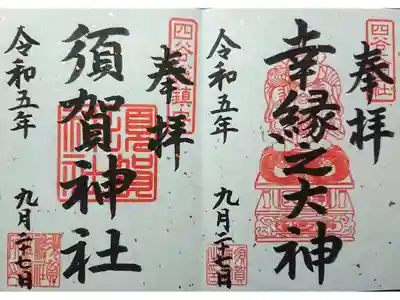 四谷
奉拝
幸縁之大神
令和五年
九月二十七日
四谷
鎮
奉拝
須賀神社
令和五年
九月二十七日